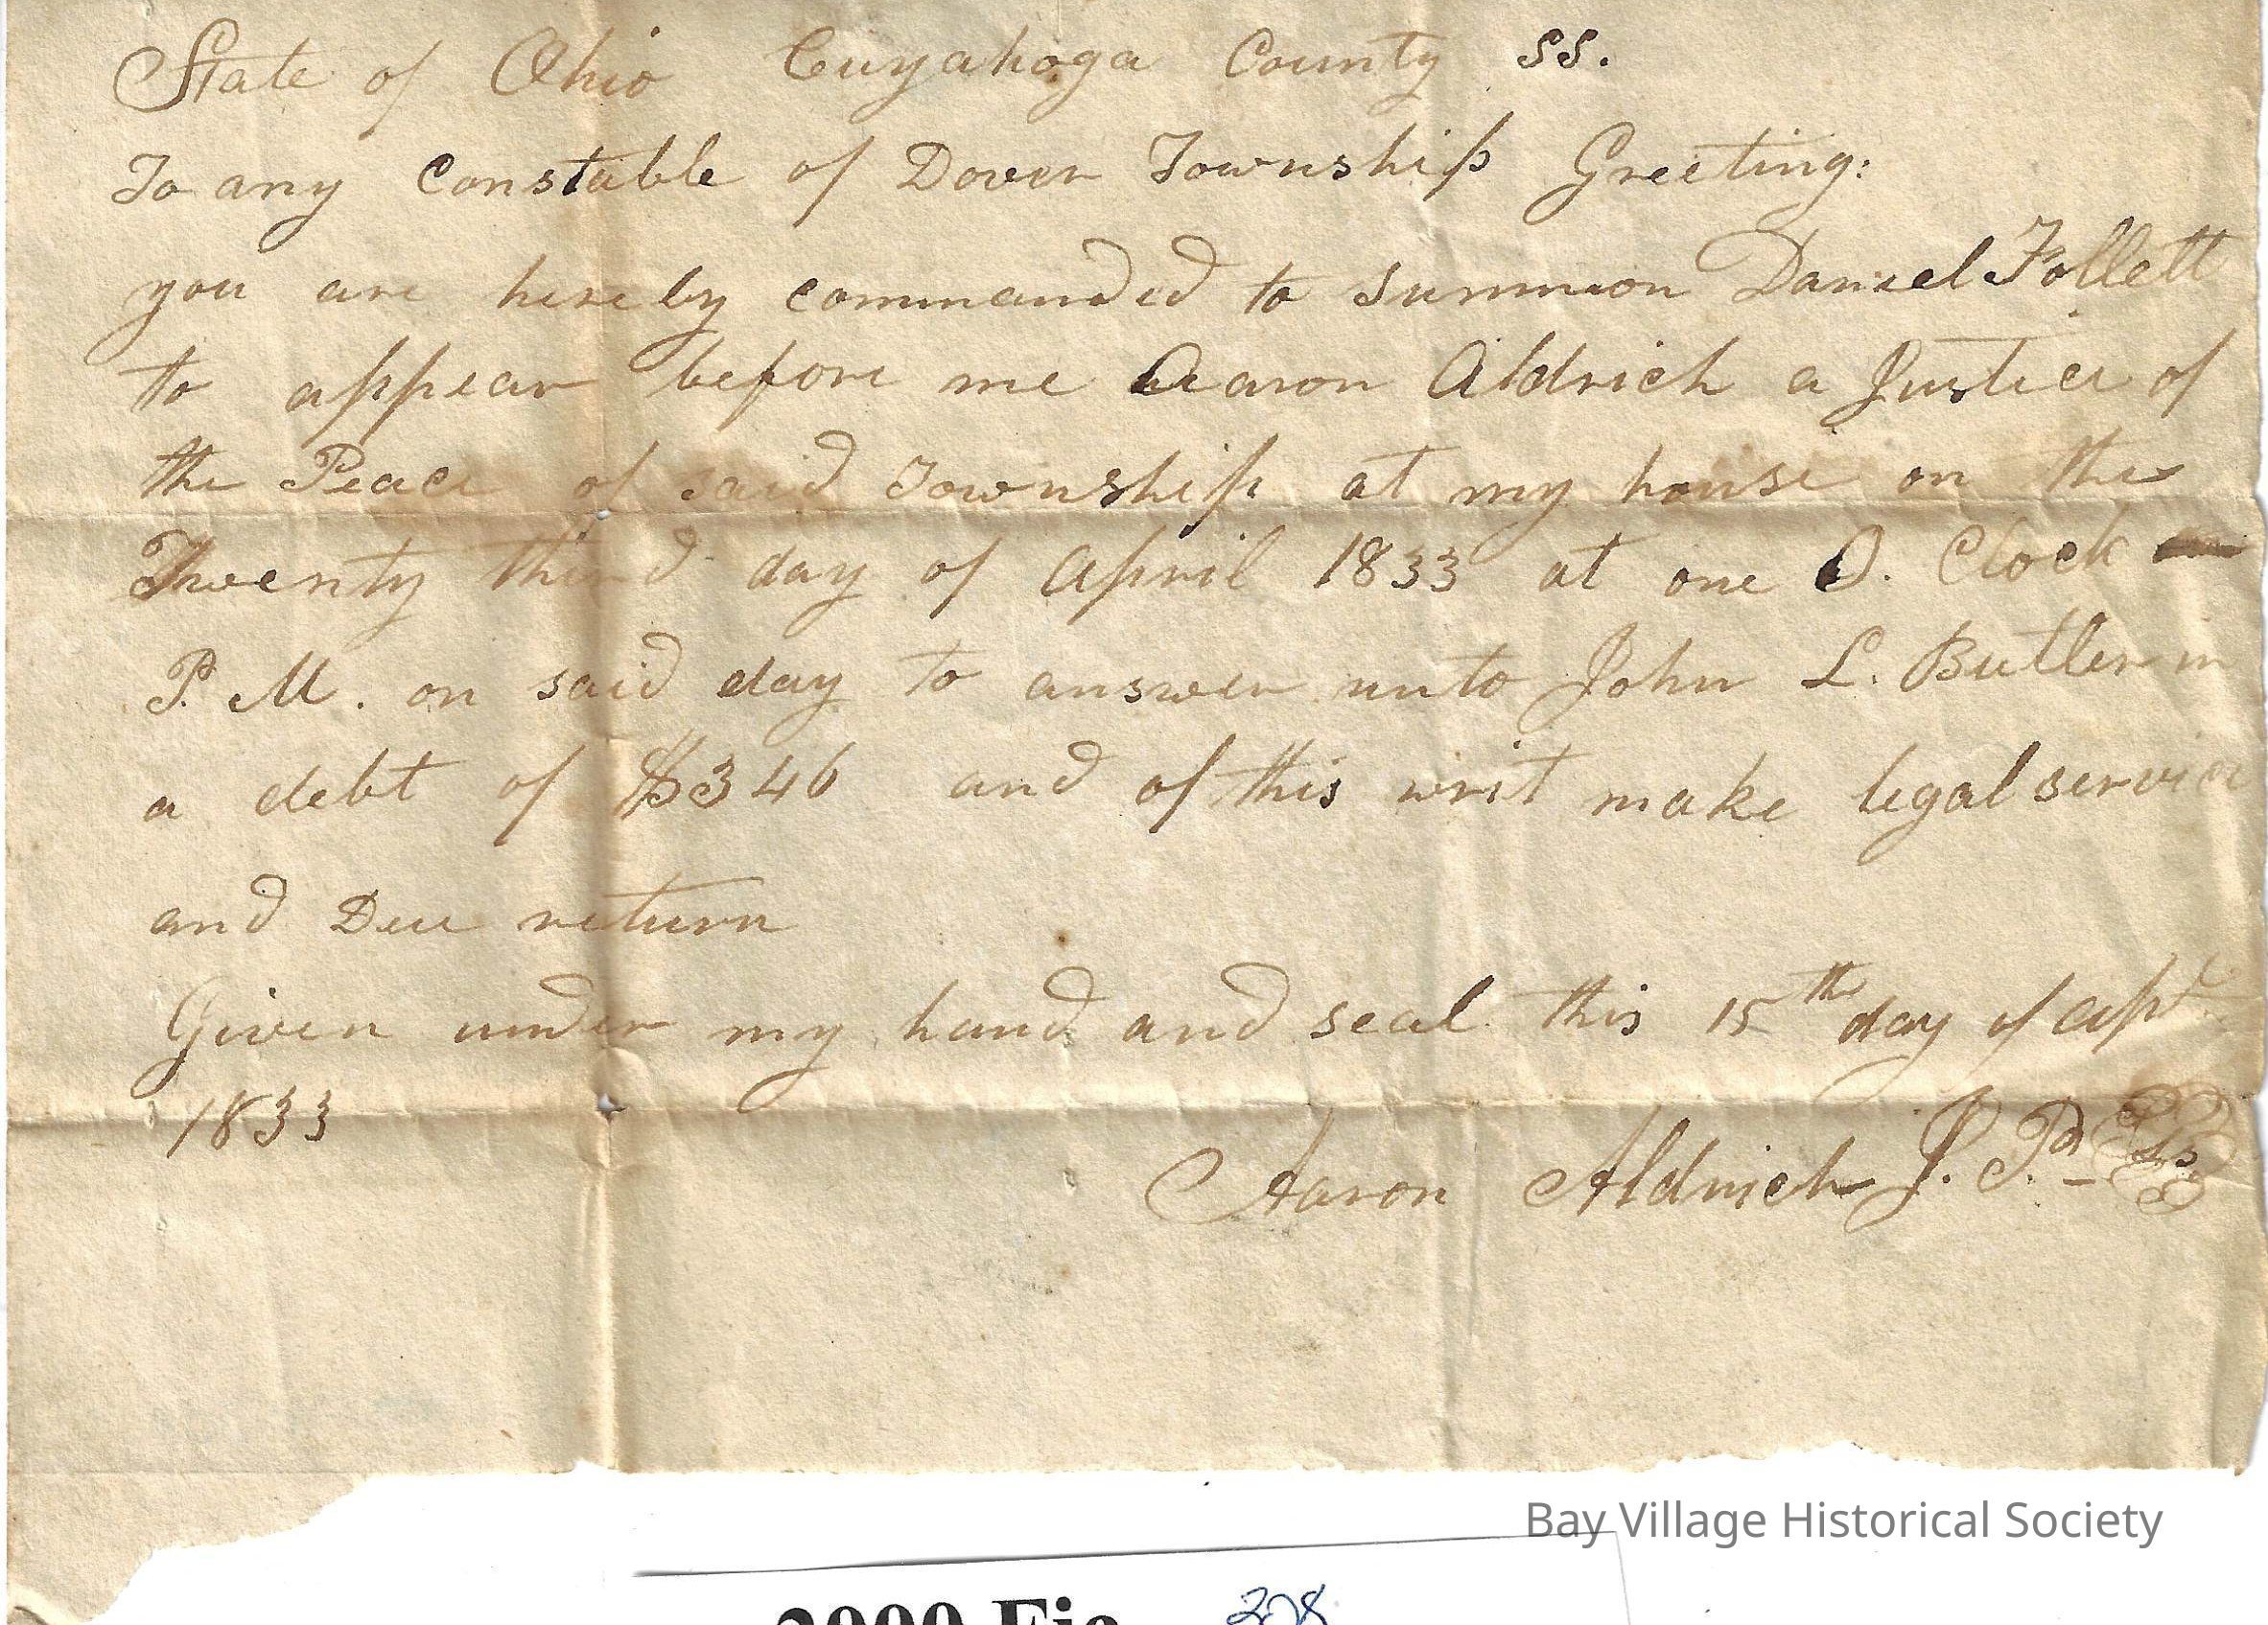 State of Ohio Cuyahoga County SS.
To any Constable of Dover Township Greeting:
you are hereby commanded to summon Daniel Follett
to appear before me Aaron Aldrich a Justice of
the Peace of said Township at my house on the
Twenty third day of April 1833 at one O. Clock
P. M. on said day to answer unto John L. Butler in
a debt of $346 and of this writ make legal service
and Due return
Given under my hand and seal this 15th day of Apl
1833
Aaron Aldrich J. P.
Bay Village Historical Society
308